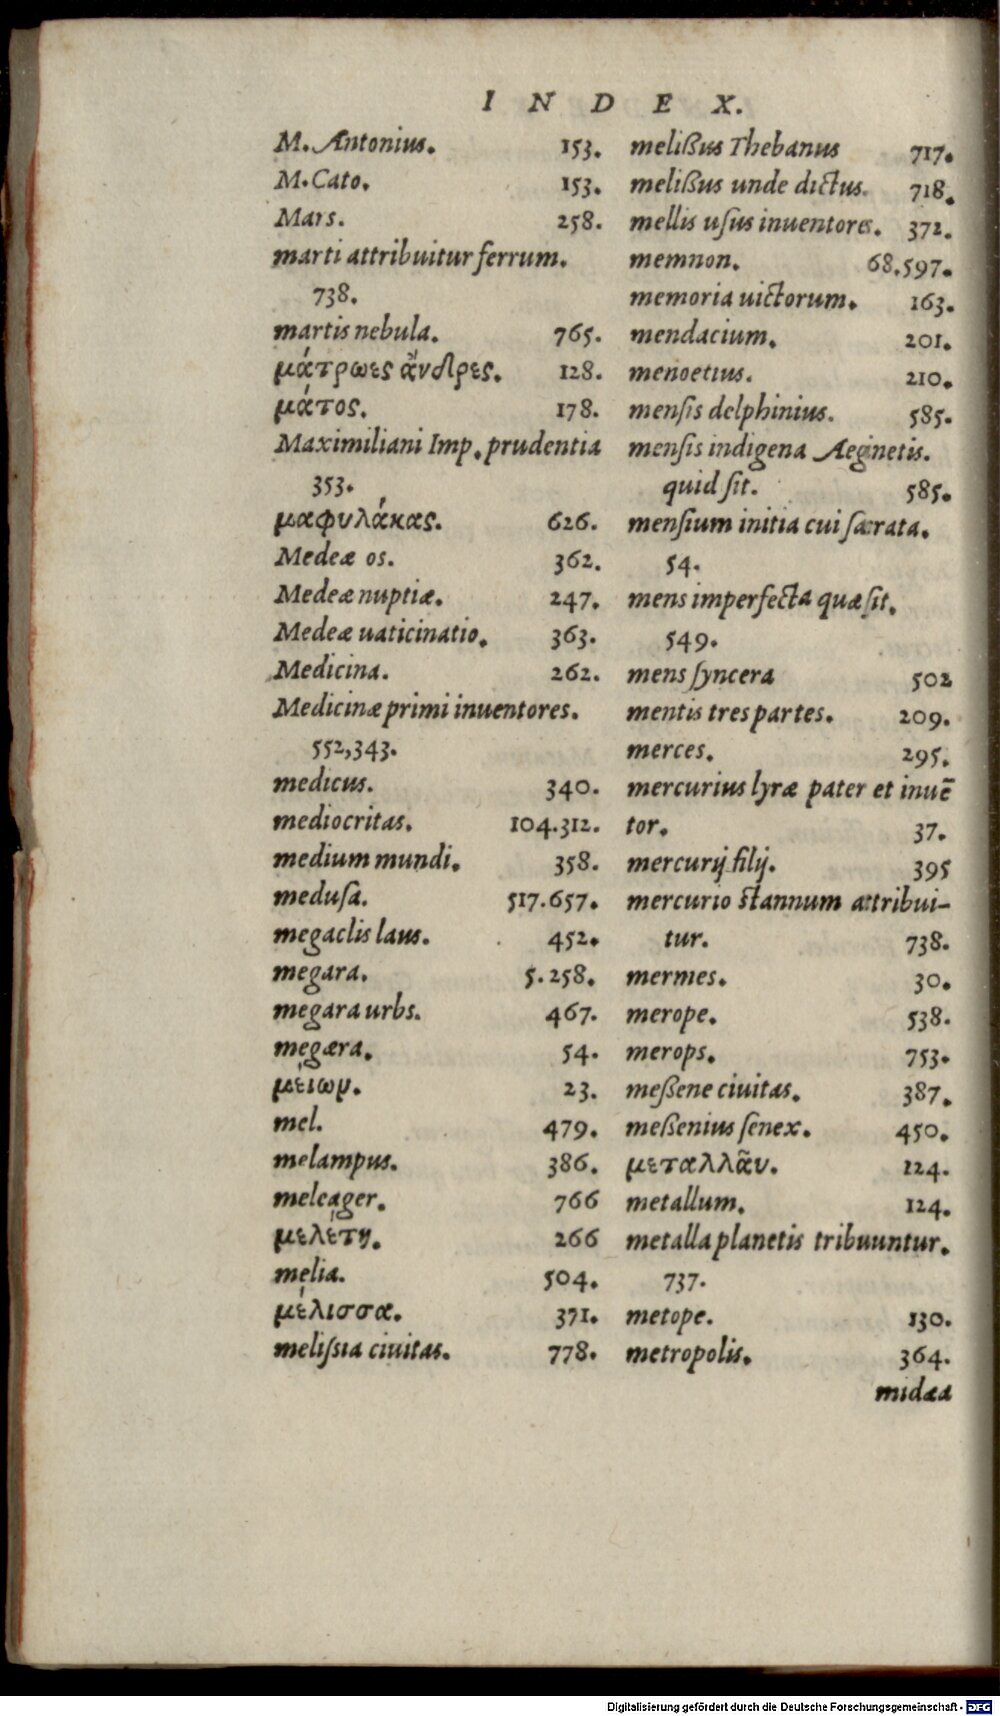 INDEX.
M. Antonius. 153.
M. Cato. 153.
Mars. 258.
marti attribuitur ferrum.
738.
martis nebula. 765.
μάτρωες ἄνδρες. 128.
μάτος. 178.
Maximiliani Imp. prudentia
353.
μαφυλάκας. 626.
Medeæ os. 362.
Medeæ nuptiæ. 247.
Medeæ uaticinatio. 363.
Medicina. 262.
Medicinæ primi inuentores.
552,343.
medicus. 340.
mediocritas. 104.312.
medium mundi. 358.
medusa. 517.657.
megaclis laus. 452.
megara. 5.258.
megara urbs. 467.
megæra. 54.
μείωμ. 23.
mel. 479.
melampus. 386.
meleager. 766
μελέτη. 266
melia. 504.
μέλισσα. 371.
melißia ciuitas. 778.
melißus Thebanus 717.
melißus unde dictus. 718.
mellis uſus inuentores. 372.
memnon. 68.597.
memoria uictorum. 163.
mendacium. 201.
menoetius. 210.
menſis delphinius. 585.
menſis indigena Aeginetis.
quid ſit. 585.
menſium initia cui ſacrata.
54.
mens imperfecta quæ ſit.
549.
mens ſyncera 502
mentis tres partes. 209.
merces. 295.
mercurius lyræ pater et inuē
tor. 37.
mercurij filij. 395
mercurio ſtannum attribui-
tur. 738.
mermes. 30.
merope. 538.
merops. 753.
meßene ciuitas. 387.
meßenius ſenex. 450.
μεταλλᾶν. 124.
metallum. 124.
metalla planetis tribuuntur.
737.
metope. 130.
metropolis. 364.
midaa
Digitalisierung gefördert durch die Deutsche Forschungsgemeinschaft - DFG